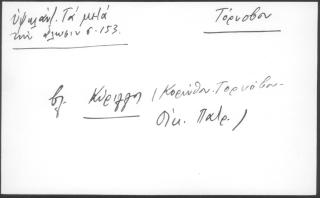 Ὑψηλάντ. Τὰ μετὰ
τὴν ἅλωσιν σ. 153.
Τόρνοβον
βλ. Κύριλλοι (Κορίνθου. Τορνόβου.
Οἰκ. Πατρ.)